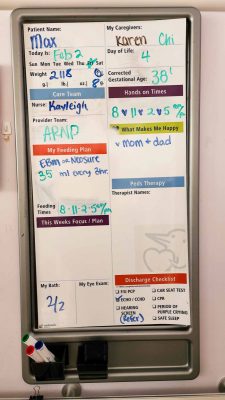 Patient Name: My Caregivers:
Max Karen Chi
Today is: Feb 2 Day of Life: 4
Sun Mon Tue Wed Thu Fri Sat
Weight 2118 Corrected Gestational Age: 38
lb.: oz.:
Care Team Hands on Times
Nurse: Kayleigh 8 11 2 5
Provider Team: What Makes Me Happy
ARNP mom + dad
My Feeding Plan
EBM or NEOSURE
35 ml every 3hr.
Peds Therapy
Therapist Names:
Feeding Times 8 - 11 - 2 - 5
This Weeks Focus / Plan
Discharge Checklist
My Bath: My Eye Exam:
2/2
F/U POP CAR SEAT TEST
ECHO / CCHD CPR
HEARING SCREEN PERIOD OF PURPLE CRYING
(Refer) SAFE SLEEP